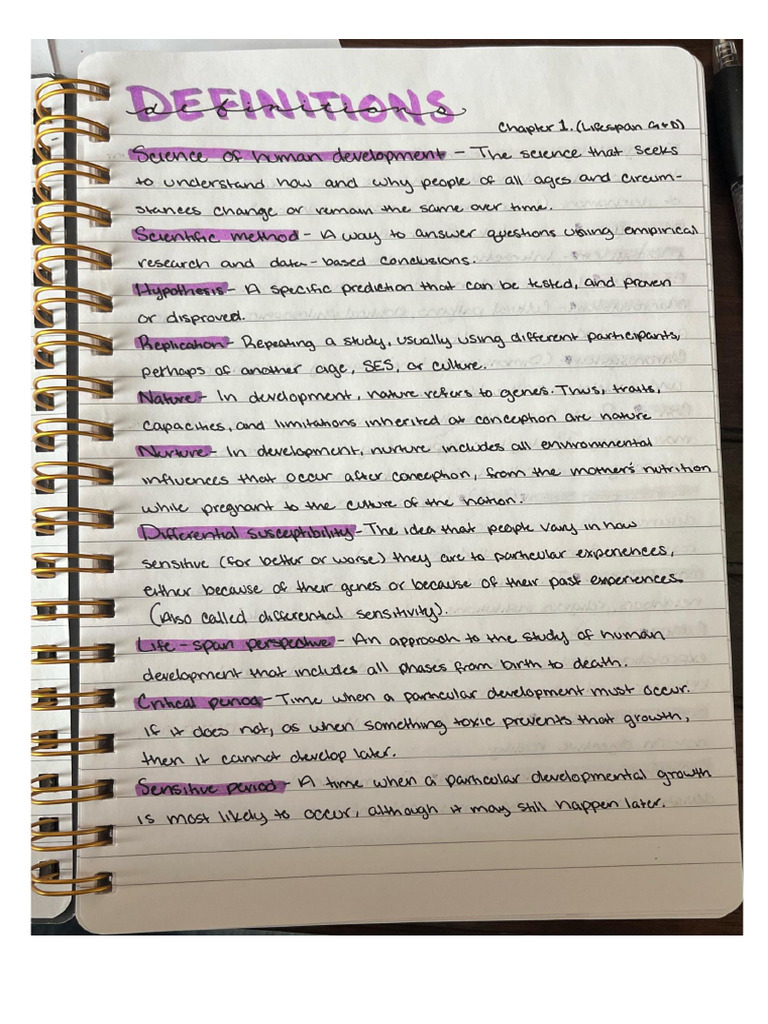 DEFINITIONS
definitions
Chapter 1. (Lifespan G+D)
Science of human development - The science that seeks
to understand how and why people of all ages and circum-
stances change or remain the same over time.
Scientific method - A way to answer questions using empirical
research and data-based conclusions.
Hypothesis - A specific prediction that can be tested, and proven
or disproved.
Replication - Repeating a study, usually using different participants,
perhaps of another age, SES, or culture.
Nature - In development, nature refers to genes. Thus, traits,
capacities, and limitations inherited at conception are nature
Nurture - In development, nurture includes all environmental
influences that occur after conception, from the mother's nutrition
while pregnant to the culture of the nation.
Differential susceptibility - The idea that people vary in how
sensitive (for better or worse) they are to particular experiences,
either because of their genes or because of their past experiences.
(Also called differential sensitivity).
Life-span perspective - An approach to the study of human
development that includes all phases from birth to death.
Critical period - Time when a particular development must occur.
If it does not, as when something toxic prevents that growth,
then it cannot develop later.
Sensitive period - A time when a particular developmental growth
is most likely to occur, although it may still happen later.